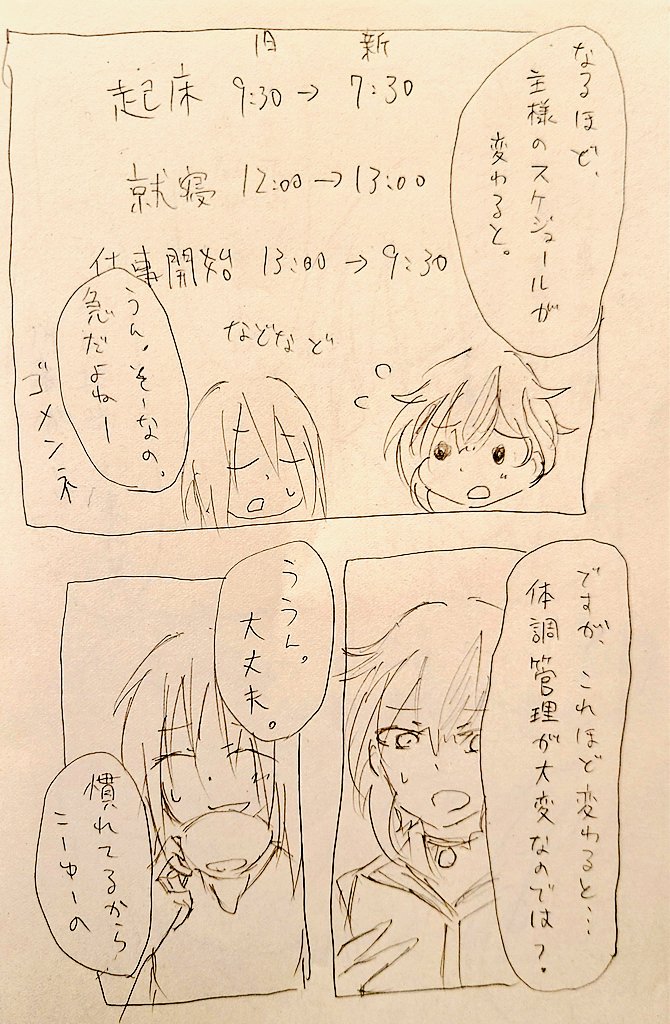 なるほど、
主様のスケジュールが
変わると。
旧 新
起床 9:30→7:30
就寝 12:00→13:00
仕事開始 13:00→9:30
などなど
うん。そーなの。
急だよねー
ゴメンネ
ですが、これほど変わると…
体調管理が大変なのでは?
ううん。
大丈夫。
慣れてるから
こーゆーの